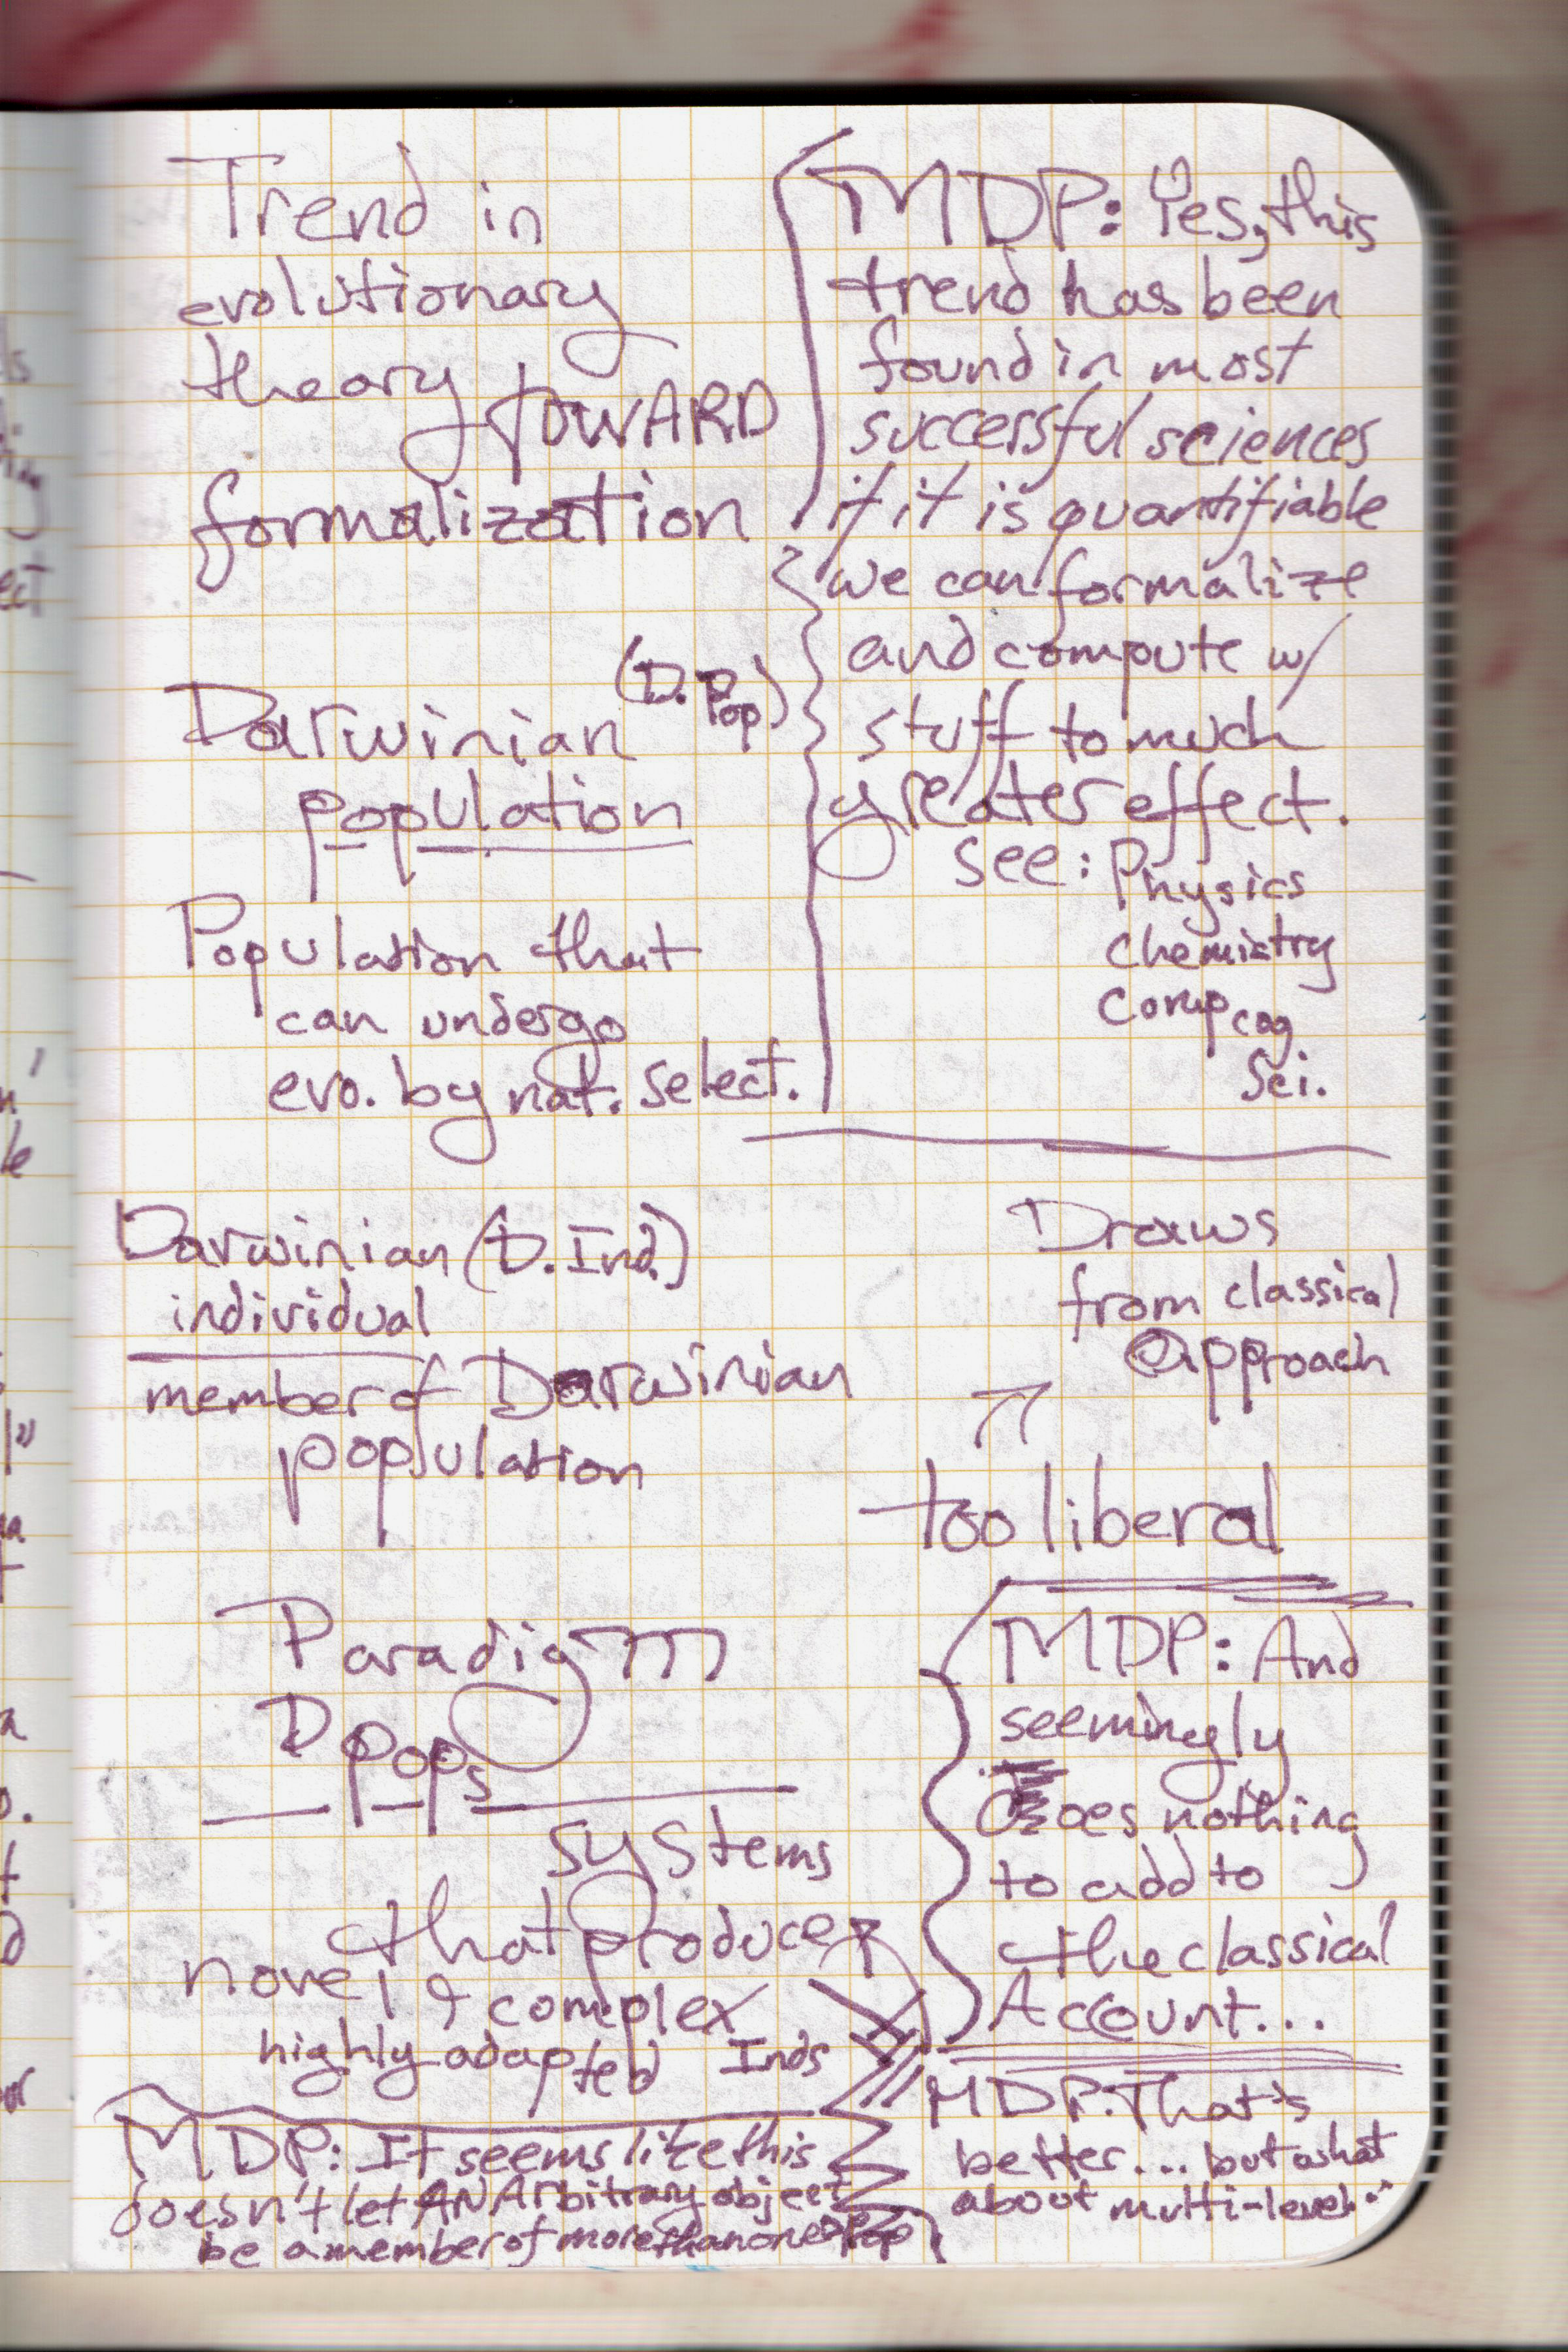 Trend in
evolutionary
theory TOWARD
formalization
(D. Pop)
Darwinian
population
Population that
can undergo
evo. by nat. select.
MDP: Yes, this
trend has been
found in most
successful sciences
if it is quantifiable
we can formalize
and compute w/
stuff to much
greater effect.
see: Physics
Chemistry
Comp cog
Sci.
Darwinian (D. Ind.)
individual
member of Darwinian
population
Draws
from classical
approach
too liberal
Paradigm
D Pops
systems
that produce
novel & complex
highly adapted Inds
MDP: And
seemingly
does nothing
to add to
the classical
Account...
MDP: It seems like this
doesn't let AN Arbitrary object
be a member of more than one D Pop
MDP: That's
better... but what
about multi-level..